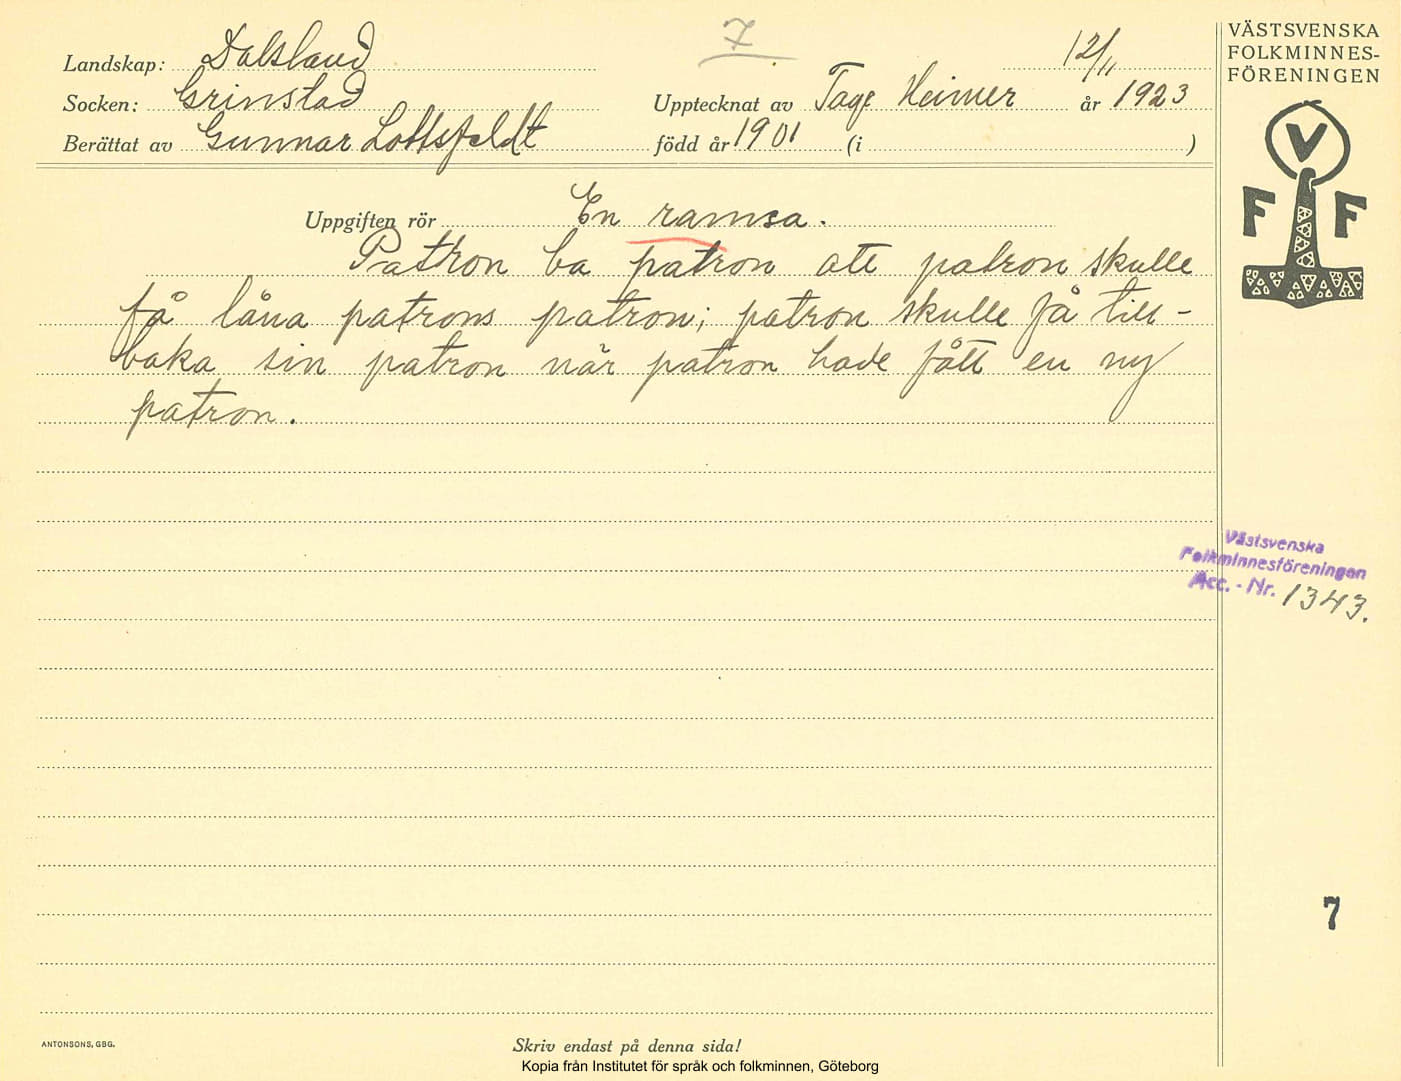 7
Landskap: Dalsland
12/11
Socken: Grinstad
Upptecknat av Tage Heimer år 1923
Berättat av Gunnar Lottsfeldt
född år 1901 (i )
Uppgiften rör En ramsa.
Patron ba patron att patron skulle
få låna patrons patron; patron skulle få till-
baka sin patron när patron hade fått en ny
patron.
VÄSTSVENSKA
FOLKMINNES-
FÖRENINGEN
V
F F
Västsvenska
Folkminnesföreningen
Acc. - Nr. 1343.
7
ANTONSONS, GBG.
Skriv endast på denna sida!
Kopia från Institutet för språk och folkminnen, Göteborg